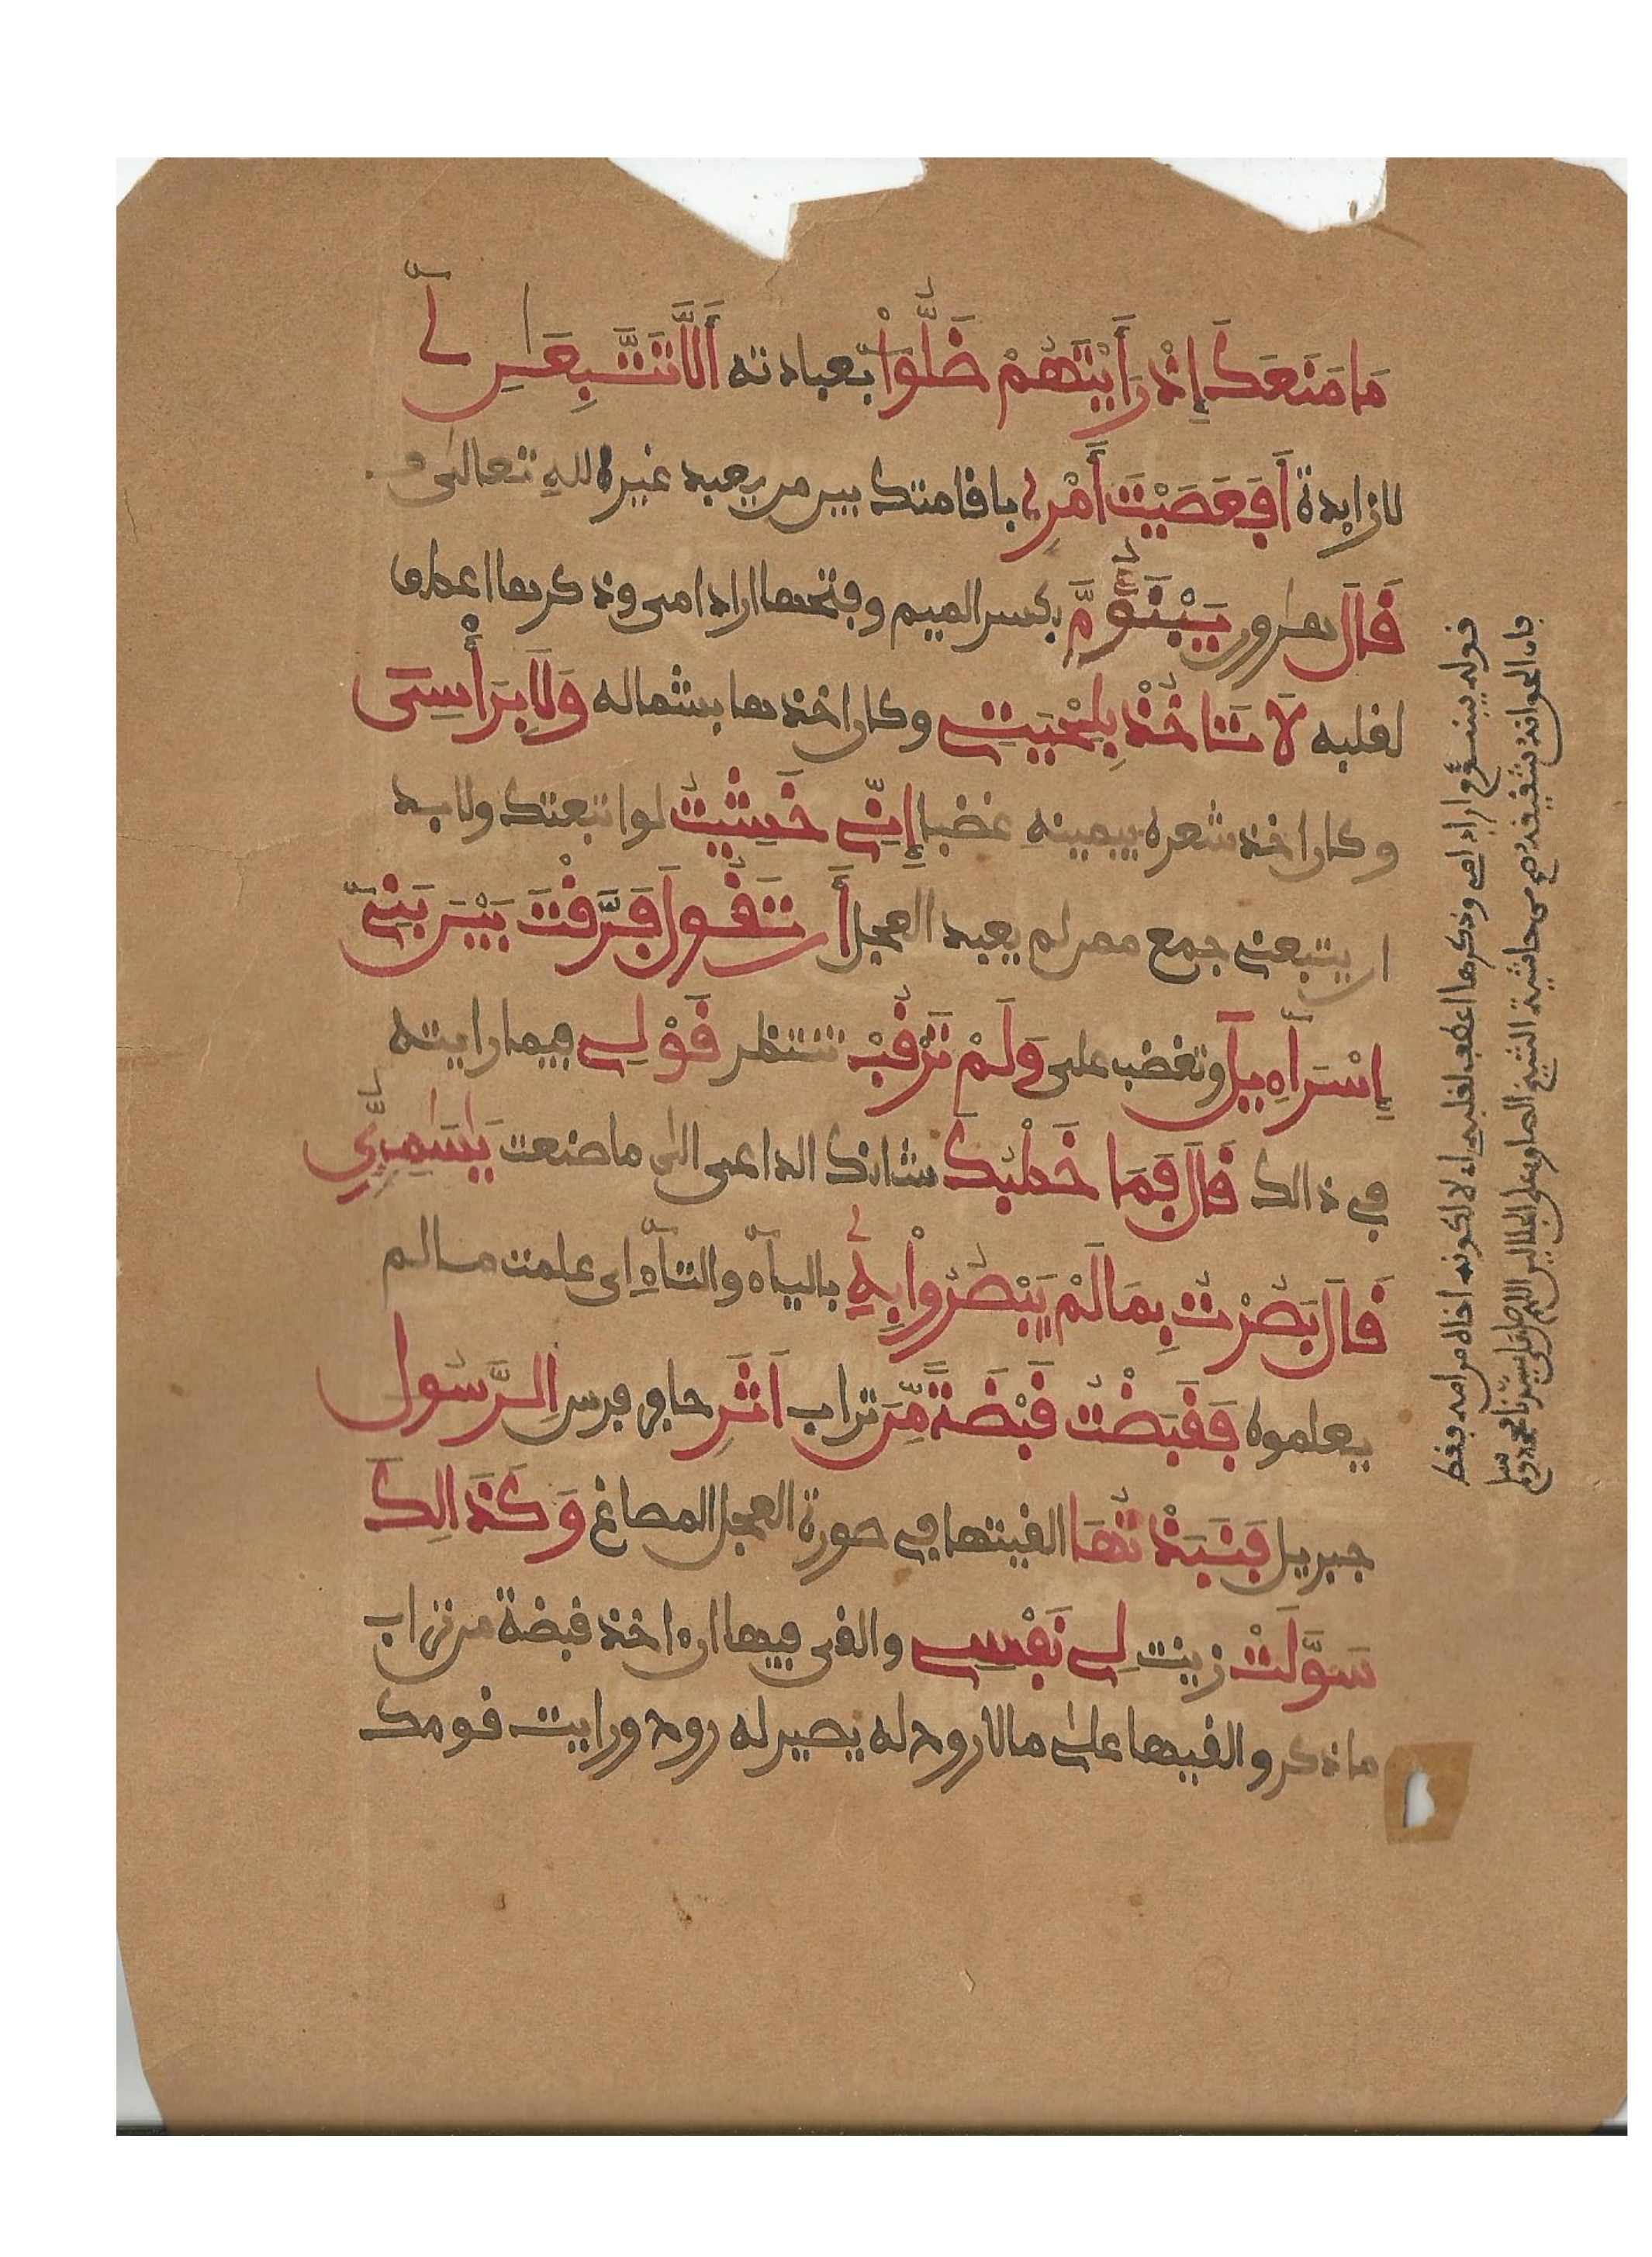 مَا مَنَعَكَ إِذْ رَأَيْتَهُمْ ضَلُّواْ بعبادته أَلَّا تَتَّبِعَنِۦ لا
زايدة أَفَعَصَيْتَ أَمْرِي باقامتك بين من يعبد غير الله تعالى
قَالَ هارون يَبْنَؤُمَّ بكسر الميم وفتحها اراد امى وذكرها اعطف
لقلبه لَا تَاخُذْ بِلِحْيَتِي وكان اخذها بشماله وَلَا بِرَأْسِيَ
وكان اخذ شعره بيمينه غضبا إِنِّي خَشِيتُ لو اتبعتك ولا بد
ان يتبعنى جمع ممن لم يعبد العجل أَن تَقُولَ فَرَّقْتَ بَيْنَ بَنِي
إِسْرَآءِيلَ وتغضب على وَلَمْ تَرْقُبْ تنتظر قَوْلِي فيما رايته
في ذالك قَالَ فَمَا خَطْبُكَ شانك الداعى الى ما صنعت يَٰسَٰمِرِيُّ
قَالَ بَصُرْتُ بِمَا لَمْ يَبْصُرُواْ بِهِۦ بالياء والتاء اى علمت ما لم
يعلموه فَقَبَضْتُ قَبْضَةً مِّنَ تراب اَثَرِ حافر فرس اِلرَّسُولِ
جبريل فَنَبَذْتُهَا القيتها في صورة العجل المصاغ وَكَذَالِكَ
سَوَّلَتْ زينت لِي نَفْسِي والقى فيها ان اخذ قبضة من تراب
ما ذكر والقيها على مالا روح له يصير له روح ورايت قومك
قوله يبنؤم اراد امي وذكرها اعطف لقلبه اى لا لكونه اخاه من امه فقط
فان الحق انه شقيقه من حاشية الشيخ الصاوى على الجلالين اللهم صل على سيدنا محمد وسلم